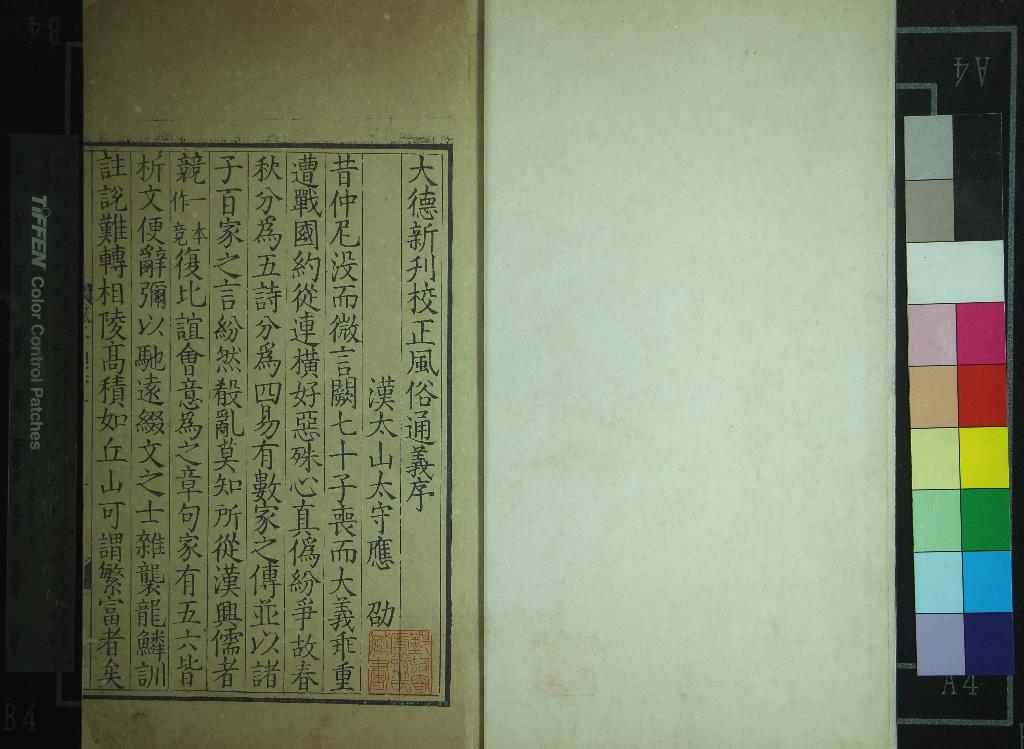 大德新刋校正風俗通義序
漢太山太守應 劭
昔仲尼没而微言闕七十子喪而大義乖重
遭戰國約從連橫好惡殊心真僞紛爭故春
秋分爲五詩分爲四易有數家之傳並以諸
子百家之言紛然殽亂莫知所從漢興儒者
競一本作竟復比誼會意爲之章句家有五六皆
析文便辭彌以馳逺綴文之士雜襲龍鱗訓
註說難轉相陵髙積如丘山可謂繁富者矣
TIFFEN Color Control Patches
A4
A4
B4
B4